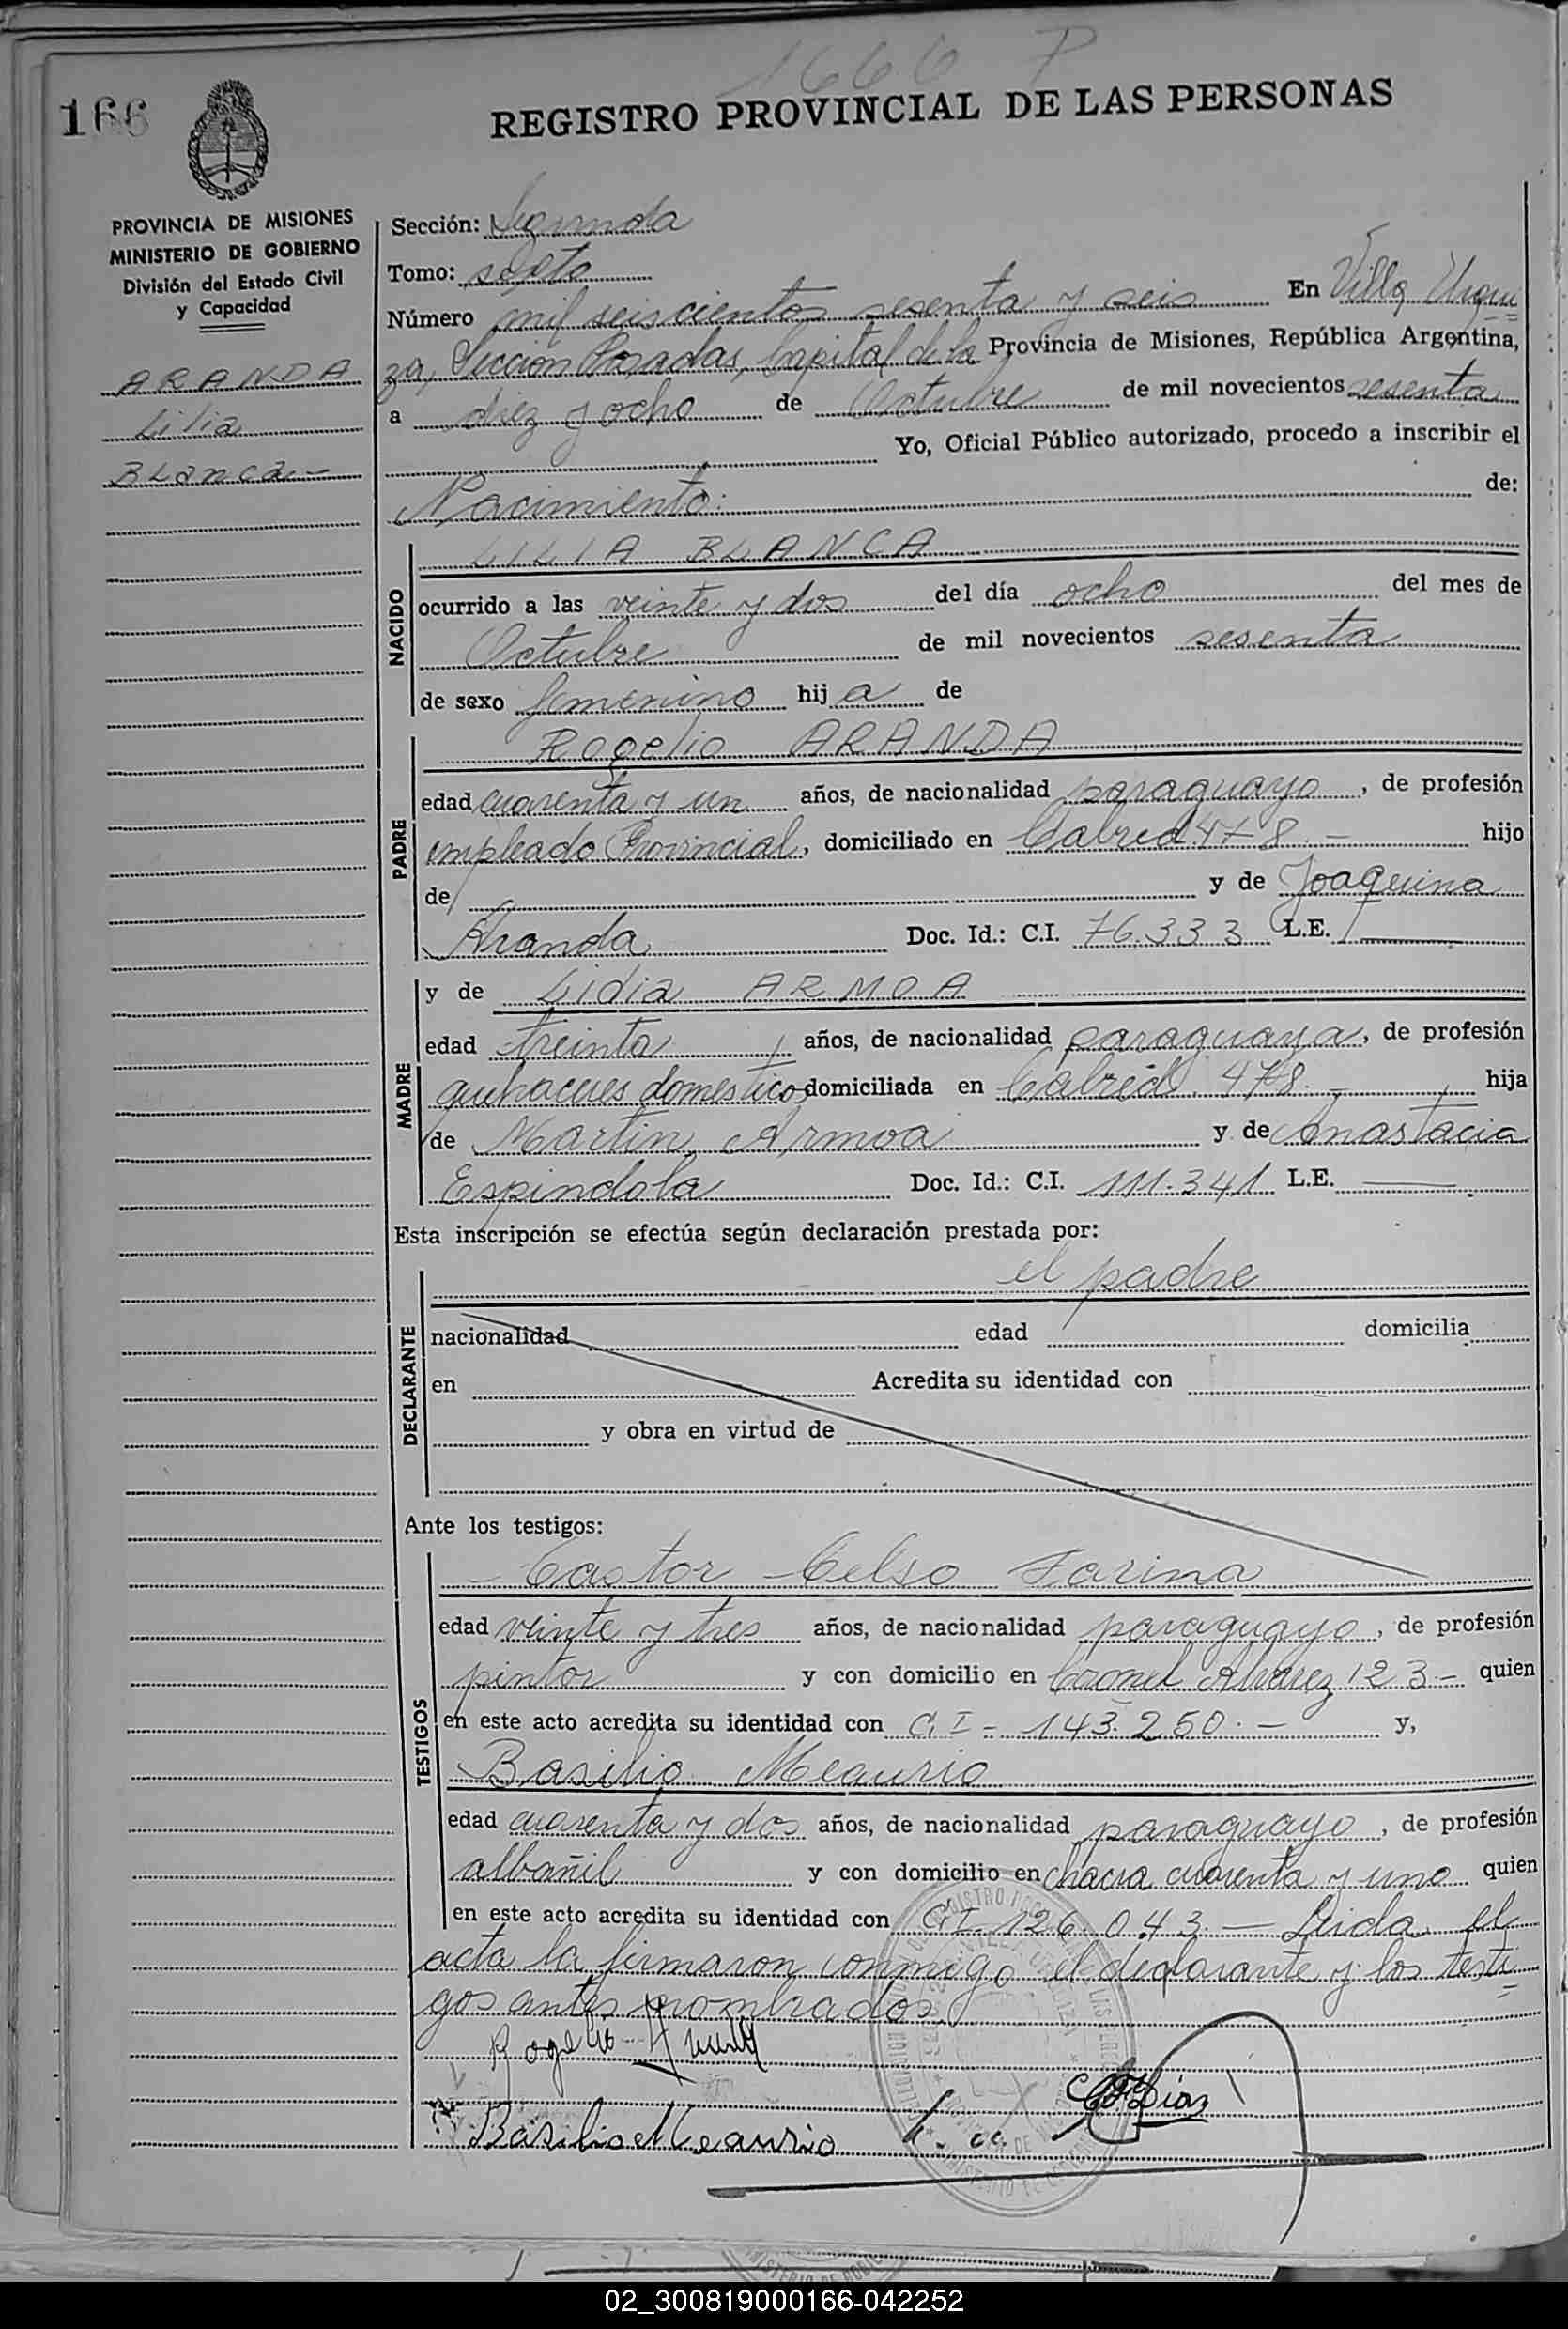 1666 P
166
REGISTRO PROVINCIAL DE LAS PERSONAS
PROVINCIA DE MISIONES
MINISTERIO DE GOBIERNO
División del Estado Civil
y Capacidad
ARANDA
Lilia
Blanca.-
Sección: Segunda
Tomo: sexto
Número mil seiscientos sesenta y seis En Villa Urqui
za, Sección Posadas, Capital de la Provincia de Misiones, República Argentina,
a diez y ocho de Octubre de mil novecientos sesenta
Yo, Oficial Público autorizado, procedo a inscribir el
Nacimiento: de:
NACIDO
LILIA BLANCA
ocurrido a las veinte y dos del día ocho del mes de
Octubre de mil novecientos sesenta
de sexo femenino hij a de
PADRE
Rogelio ARANDA
edad cuarenta y un años, de nacionalidad paraguayo, de profesión
empleado Provincial, domiciliado en Cabred 478.- hijo
de y de Joaquina
Aranda Doc. Id.: C.I. 76.333 L.E.
MADRE
y de Lidia ARMOA
edad treinta años, de nacionalidad paraguaya, de profesión
quehaceres domesticos domiciliada en Cabred 478.- hija
de Martin Armoa y de Anastacia
Espindola Doc. Id.: C.I. 111.341 L.E.
Esta inscripción se efectúa según declaración prestada por:
DECLARANTE
el padre
nacionalidad edad domicilia
en Acredita su identidad con
y obra en virtud de
Ante los testigos:
TESTIGOS
- Castor Celso Farina
edad veinte y tres años, de nacionalidad paraguayo, de profesión
pintor y con domicilio en Coronel Alvarez 123.- quien
en este acto acredita su identidad con C.I - 143.250.- y,
Basilio Meaurio
edad cuarenta y dos años, de nacionalidad paraguayo, de profesión
albañil y con domicilio en chacra cuarenta y uno quien
en este acto acredita su identidad con C.I. 126.043.- Leida el
acta la firmaron conmigo el declarante y los testi
gos antes nombrados.
Rogelio
Basilio Meaurio
Diaz
02_300819000166-042252